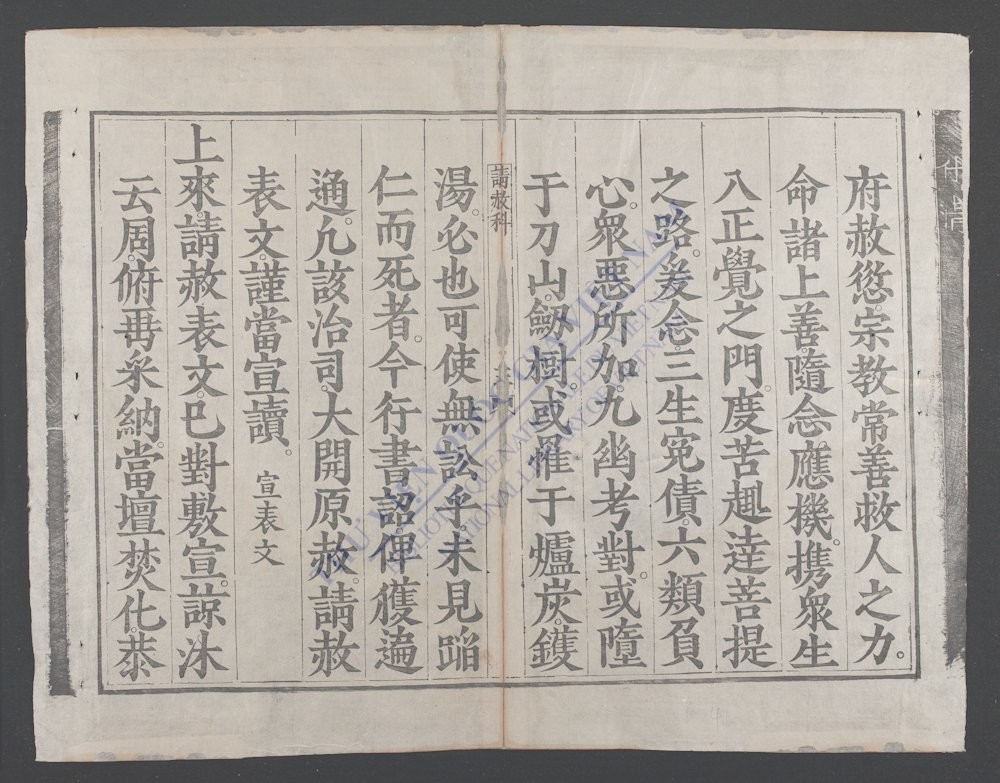 府赦愆。宗教常善救人之力。
命諸上善。隨念應機。携衆生
八正覺之門。度苦趣。逹菩提
之路。爰念。三生冤債。六類負
心。衆惡所加。九幽考對。或墮
于刀山。劔樹。或罹于爐炭。鑊
請赦科
湯。必也可使無訟乎。未見蹈
仁而死者。今行書詔。俾獲遍
通。凢該治司。大開原赦。請赦
表文。謹當宣讀。 宣表文
上來。請赦表文。已對敷宣。諒沐
云周。俯冉采納。當壇焚化。恭